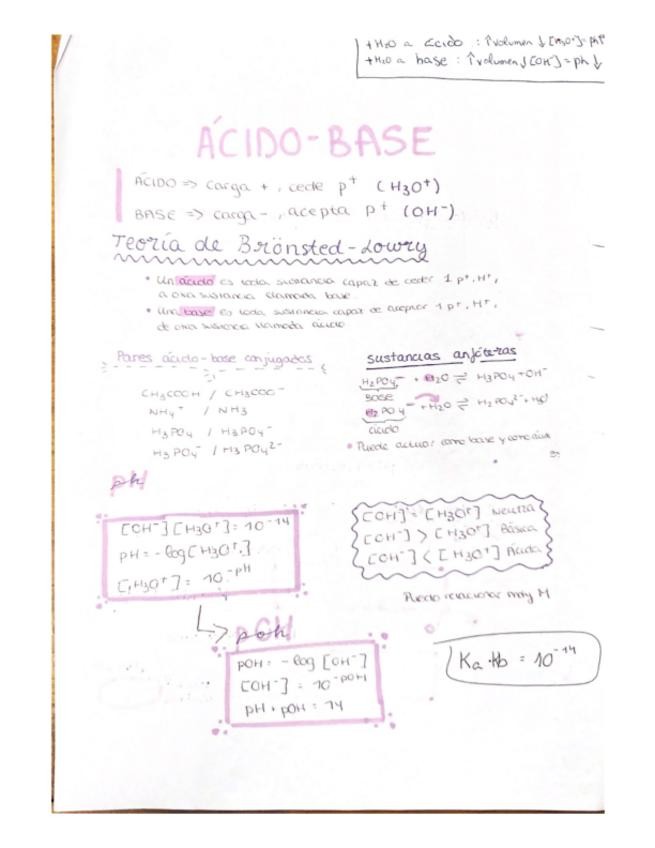 +H2O a ácido : ↑volumen ↓[H3O+]= ph↑
+H2O a base : ↑volumen ↓[OH-] = ph ↓
ÁCIDO-BASE
ÁCIDO => carga +, cede p+ (H3O+)
BASE => carga -, acepta p+ (OH-)
Teoría de Brönsted-Lowry
• Un ácido es toda sustancia capaz de ceder 1 p+, H+,
a otra sustancia llamada base.
• Una base es toda sustancia capaz de aceptar 1 p+, H+,
de otra sustancia llamada ácido
Pares ácido-base conjugados
CH3COOH / CH3COO-
NH4+ / NH3
H3PO4 / H3PO4-
H3PO4- / H3PO4 2-
sustancias anfóteras
H2PO4- + H2O ⇌ H3PO4 + OH-
BASE
H2PO4- + H2O ⇌ H2PO4 2- +
ácido
• Puede actuar como base y como
pH
[OH-][H3O+] = 10-14
pH = -log[H3O+]
[H3O+] = 10-pH
[OH] = [H3O+] Neutra
[OH-] > [H3O+] Básica
[OH-] < [H3O+] Ácida
Puedo relacionar M
pOH
pOH = -log [OH-]
[OH-] = 10-pOH
pH + pOH = 14
Ka·Kb = 10-14